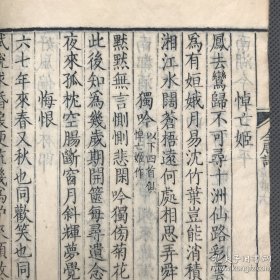 悼亡姬
鳳去鸞歸不可尋十洲仙路彩
為有姮娥月易沈竹葉豈能消積
湘江水闊蒼梧遠何處相思弄舜
獨吟 以下四首俱悼亡姬作
默默無言惻惻吟獨傍菊花
此後知為幾歲期開篋每尋遺念
夜來孤枕空腸斷窗月斜輝夢覺
悔恨
六七年來春又秋也同歡笑也同
試說求婚淚便流幾為妒來頻